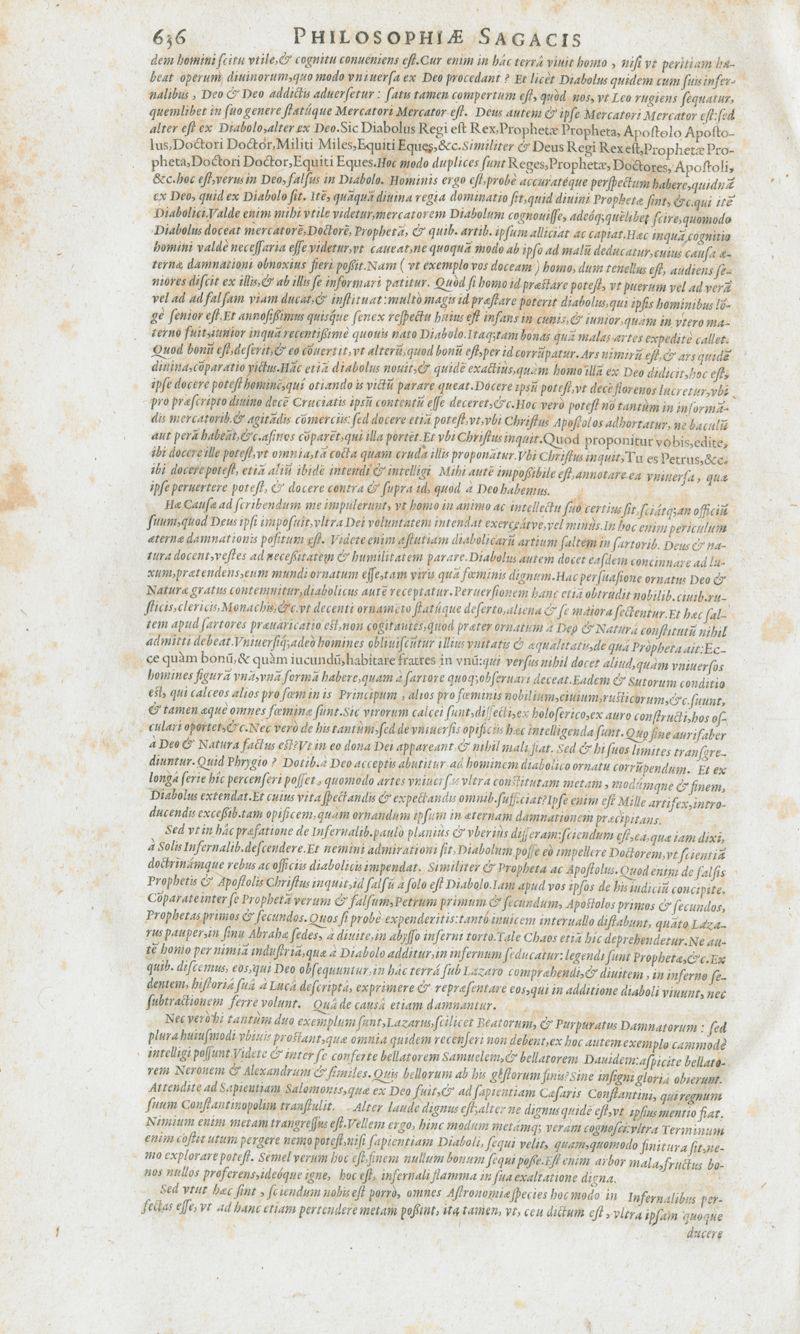 636 PHILOSOPHIÆ SAGACIS
dem homini scitu vtile,& cognitu conueniens est.Cur enim in hâc terrâ viuit homo , nisi vt peritiam ha-
beat operum diuinorum,quo modo vniuersa ex Deo procedant ? Et licèt Diabolus quidem cum suis infer-
nalibus , Deo & Deo addictis aduersetur : satu tamen compertum est, quòd nos, vt Leo rugiens sequatur,
quemlibet in suo genere statúque Mercatori Mercator est. Deus autem & ipse Mercatori Mercator est:sed
alter est ex Diabolo,alter ex Deo.Sic Diabolus Regi est Rex,Prophetæ Propheta, Apostolo Aposto-
lus,Doctori Doctor,Militi Miles,Equiti Eques,&c.Similiter & Deus Regi Rex est,Prophetæ Pro-
pheta,Doctori Doctor,Equiti Eques.Hoc modo duplices sunt Reges,Prophetæ, Doctores, Apostoli,
&c.hoc est,verus in Deo,falsus in Diabolo. Hominis ergo est,probè accuratéque perspectum habere,quidnã
ex Deo, quid ex Diabolo sit. Itẽ, quãquã diuina regia dominatio sit,quid diuini Prophetæ sint, &c.qui itẽ
Diabolici.Valde enim mihi vtile videtur,mercatorem Diabolum cognouisse, adeóq;quẽlibet scire,quomodo
Diabolus doceat mercatorẽ,Doctorẽ, Prophetã, & quib. artib. ipsum alliciat ac capiat.Hæc inquã,cognitio
homini valdè necessaria esse videtur,vt caueat,ne quoquã modo ab ipso ad malũ deducatur,cuius causa æ-
ternæ damnationi obnoxius fieri possit.Nam ( vt exemplo vos doceam ) homo, dum tenellus est, audiens se-
niores discit ex illis,& ab illis se informari patitur. Quòd si homo id præstare potest, vt puerum vel ad verã
vel ad ad falsam viam ducat,& instituat:multò magis id præstare poterit diabolus,qui ipsis hominibus lõ-
gè senior est.Et annosissimus quisque senex respectu huius est infans in cunis,& iunior,quàm in vtero ma-
terno fuit,iunior inquã recentissimè quouis nato Diabolo.Itaq;tam bonas quã malas artes expeditè callet.
Quod bonũ est,deserit,& eo cõuertit,vt alterũ,quod bonũ est,per id corrũpatur.Ars nimirũ est,& ars quidẽ
diuina,cõparatio victus.Hãc etiã diabolus nouit,& quidẽ exactius,quàm homo illã ex Deo didicit,hoc est,
ipse docere potest hominẽ,qui otiando is victũ parare queat.Docere ipsũ potest,vt decẽ florenos lucretur,vbi
pro præscripto diuino decẽ Cruciatis ipsũ contentũ esse deceret,&c.Hoc verò potest nõ tantùm in informã-
dis mercatorib.& agitãdis cõmerciis:sed docere etiã potest,vt,vbi Christus Apostolos adhortatur, ne baculũ
aut perã habeãt,&c.asinos cõparẽt,qui illa portẽt.Et vbi Christus inquit.Quod proponitur vobis,edite,
ibi docere ille potest,vt omnia,tã cocta quam cruda illis proponãtur.Vbi Christus inquit,Tu es Petrus,&c.
ibi docere potest, etiã aliũ ibidẽ intendi & intelligi Mihi autẽ impossibile est,annotare ea vniuersa , quæ
ipse peruertere potest, & docere contra & supra id, quod à Deo habemus.
Hæ Causæ ad scribendum me impulerunt, vt homo in animo ac intellectu suo certius sit,sciátq;an officiũ
suum,quod Deus ipsi imposuit,vltra Dei voluntatem intendat exerceátve,vel minùs.In hoc enim periculum
æternæ damnationis positum est. Videte enim astutiam diabolicarũ artium saltem in sartorib. Deus & na-
tura docent,vestes ad necessitatem & humilitatem parare.Diabolus autem docet easdem concinnare ad lu-
xum,prætendens,eum mundi ornatum esse,tam viris quã fœminis dignum.Hac persuasione ornatus Deo &
Naturæ gratus contemnitur,diabolicus autẽ receptatur.Peruersionem hanc etiã obtrudit nobilib.ciuib.ru-
sticis,clericis,Monachis,&c.vt decenti ornamẽto statúque deserto,aliena & se maiora sectentur.Et hæc sal-
tem apud sartores præuaricatio est,non cogitantes,quod præter ornatum à Deo & Natura constitutũ nihil
admitti debeat.Vniuersiq;adeò homines obliuiscũtur illius vnitatis & æqualitatis,de qua Propheta ait:Ec-
ce quàm bonũ,& quàm iucundũ,habitare fratres in vnũ:qui versus nihil docet aliud,quàm vniuersos
homines figurã vnã,vnã formã habere,quam à sartore quoq;obseruari deceat.Eadem & Sutorum conditio
est, qui calceos alios pro fœminis Principum , alios pro fœminis nobilium,ciuium,rusticorum,&c.suunt,
& tamen æquè omnes fœminæ sunt.Sic virorum calcei sunt,dissecti,ex holoserico,ex auro constructi,hos os-
culari oportet,&c.Nec verò de his tantùm,sed de vniuersis opificiis hæc intelligenda sunt. Quo fine aurifaber
à Deo & Natura factus est?Vt in eo dona Dei appareant & nihil mali fiat. Sed & hi suos limites transgre-
diuntur.Quid Phrygio ? Dotib.à Deo acceptis abutitur ad hominem diabolico ornatu corrũpendum. Et ex
longa serie hic percenseri posset , quomodo artes vniuersas vltra constitutam metam , modúmque & finem,
Diabolus extendat.Et cuius vita spectandis & expectandis omnib.sufficiat?Ipse enim est Mille artifex,intro-
ducendis excessib.tam opificem,quam ornandum ipsum in æternam damnationem præcipitans.
Sed vt in hâc præfatione de Infernalib.paulò planius & vberius disseram:sciendum est,ea,quæ iam dixi,
à Solis Infernalib.descendere.Et nemini admirationi sit,Diabolum posse eò impellere Doctorem,vt scientiã
doctrinámque rebus ac officiis diabolicis impendat. Similiter & Propheta ac Apostolus. Quod enim de falsis
Prophetis & Apostolis Christus inquit,id falsũ à solo est Diabolo.Iam apud vos ipsos de his iudiciũ concipite.
Cõparate inter se Prophetã verum & falsum,Petrum primum & secundum, Apostolos primos & secundos,
Prophetas primos & secundos.Quos si probè expenderitis:tantò inuicem interuallo distabunt, quãto Laza-
rus pauper,in sinu Abrahæ sedes, à diuite,in abysso inferni torto.Tale Chaos etiã hic deprehendetur.Ne au-
tẽ homo per nimiã industriã,quæ à Diabolo additur,in infernum seducatur:legendi sunt Prophetæ,&c.Ex
quib. discemus, eos,qui Deo obsequuntur,in hâc terrâ sub Lazaro comprehendi,& diuitem, in inferno se-
dentem, historiã suã à Lucâ descriptâ, exprimere & repræsentare eos,qui in additione diaboli viuunt, nec
subtractionem ferre volunt. Quâ de causâ etiam damnantur.
Nec verò hi tantùm duo exemplum sunt,Lazarus,scilicet Beatorum, & Purpuratus Damnatorum : sed
plura huiusmodi vbiuis prostant,quæ omnia quidem recenseri non debent,ex hoc autem exemplo cammodè
intelligi possunt Videte & inter se conferte bellatorem Samuelem,& bellatorem Dauidem:aspicite bellato-
rem Neronem & Alexandrum & similes. Quis bellorum ab his gestorum finis?Sine insigni gloriâ obierunt.
Attendite ad Sapientiam Salomonis,quæ ex Deo fuit,& ad sapientiam Cæsaris Constantini, qui regnum
suum Constantinopolim transtulit. Alter laude dignus est,alter ne dignus quidẽ est,vt ipsius mentio fiat.
Nimium enim metam trangressus est.Vellem ergo, hinc modum metámq; veram cognosci:vltra Terminum
enim cõstitutum pergere nemo potest,nisi sapientiam Diaboli, sequi velit, quam,quomodo finitura sit,ne-
mo explorare potest. Semel verum hoc est,finem nullum bonum sequi posse.Est enim arbor mala,fructus bo-
nos nullos proferens,ideóque igne, hoc est, infernali flamma in sua exaltatione digna.
Sed vtut hæc sint , sciendum nobis est porrò, omnes Astronomiæ species hoc modo in Infernalibus per-
fectas esse, vt ad hanc etiam pertendere metam possint, ita tamen, vt, ceu dictum est , vltra ipsam quoque
ducere